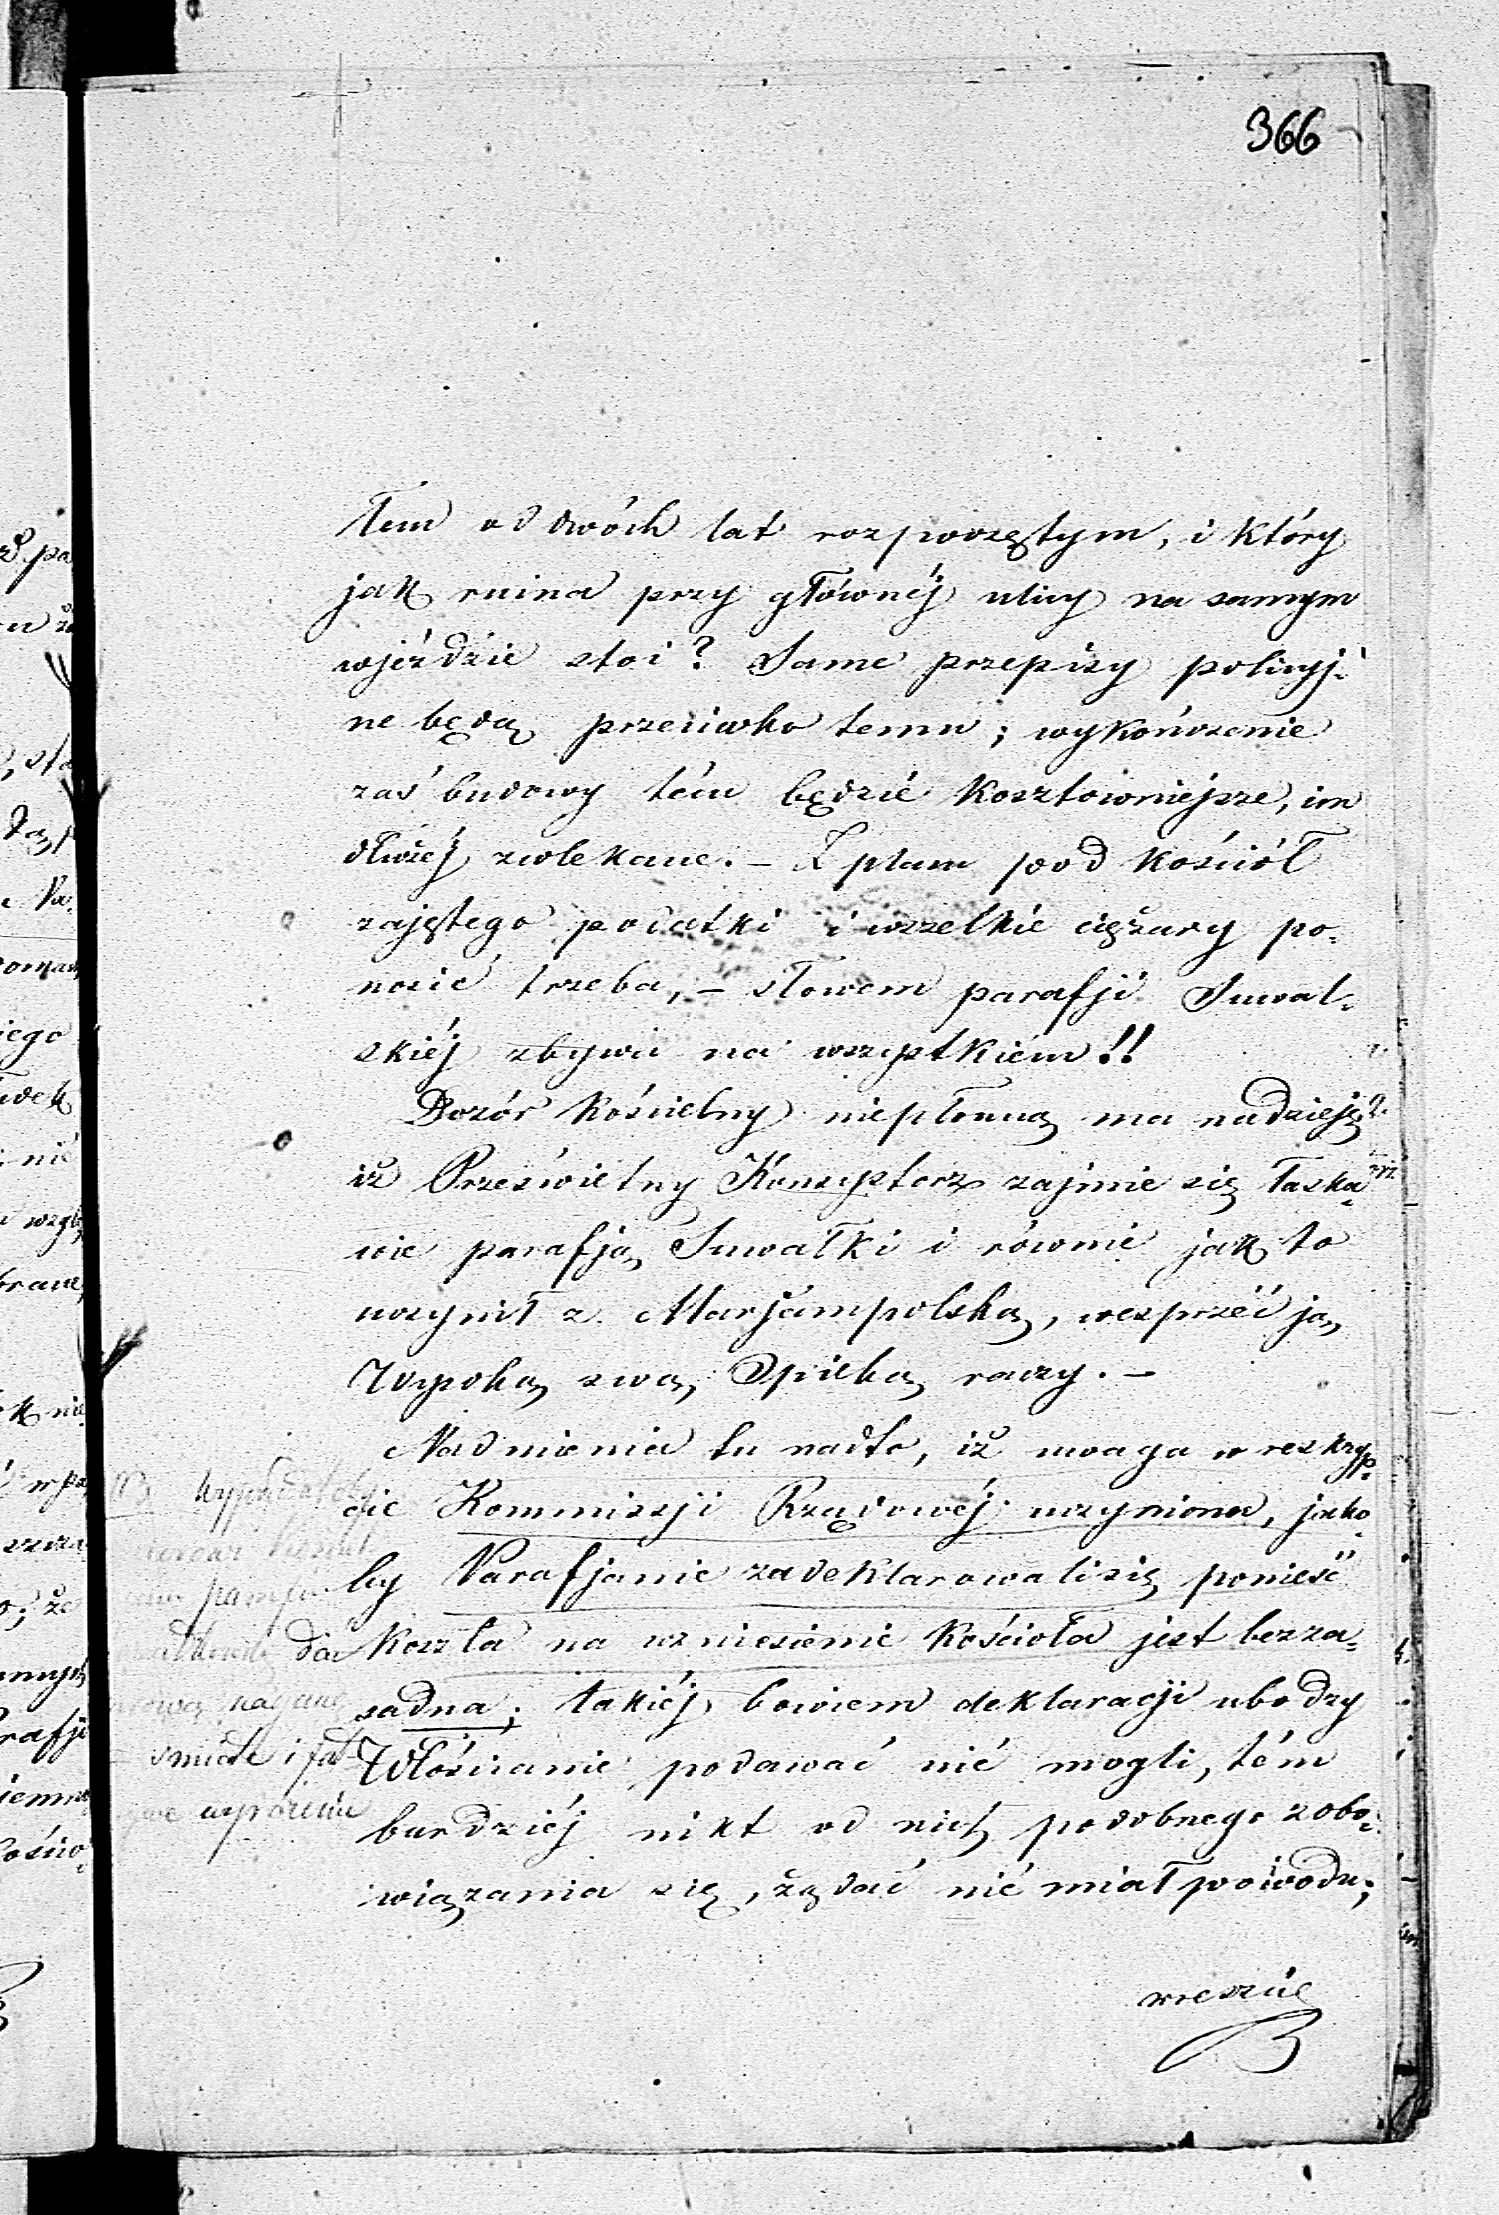 366
łem od dwóch lat rozpoczętym, i który
jak ruina przy głównéj ulicy na samym
wjeździe stoi? Same przepisy policyj-
ne będą przeciwko temu; wykończenie
zaś budowy tém będzie kosztowniejsze, im
dłużéj zwlekane. – Z placu pod kościół
zajętego podatki i wszelkie ciężary po-
nosić trzeba, – słowem parafji Suwal-
skiéj zbywa na wszystkiém!!
Dozór kościelny niepłonną ma nadzieję
iż Prześwietny Konsystorz zajmie się łaska-
wie parafją Suwałki i równie jak to
uczynił z Marjampolską, wesprzéć ją
Wysoką swą Opieką raczy. –
Nadmienia tu nadto, iż uwaga w reskryp-
cie Kommissji Rządowéj uczyniona, jako-
by Parafjanie zadeklarowali się ponieść
koszta na wzniesienie kościoła jest bezza-
sadna; takiéj bowiem deklaracji ubodzy
Włościanie podawać nie mogli, tém
bardziéj nikt od nich podobnego zobo-
wiązania się, żądać nie miał powodu;
wreszcie
dać
naganę
smiałe i
wyrażenie